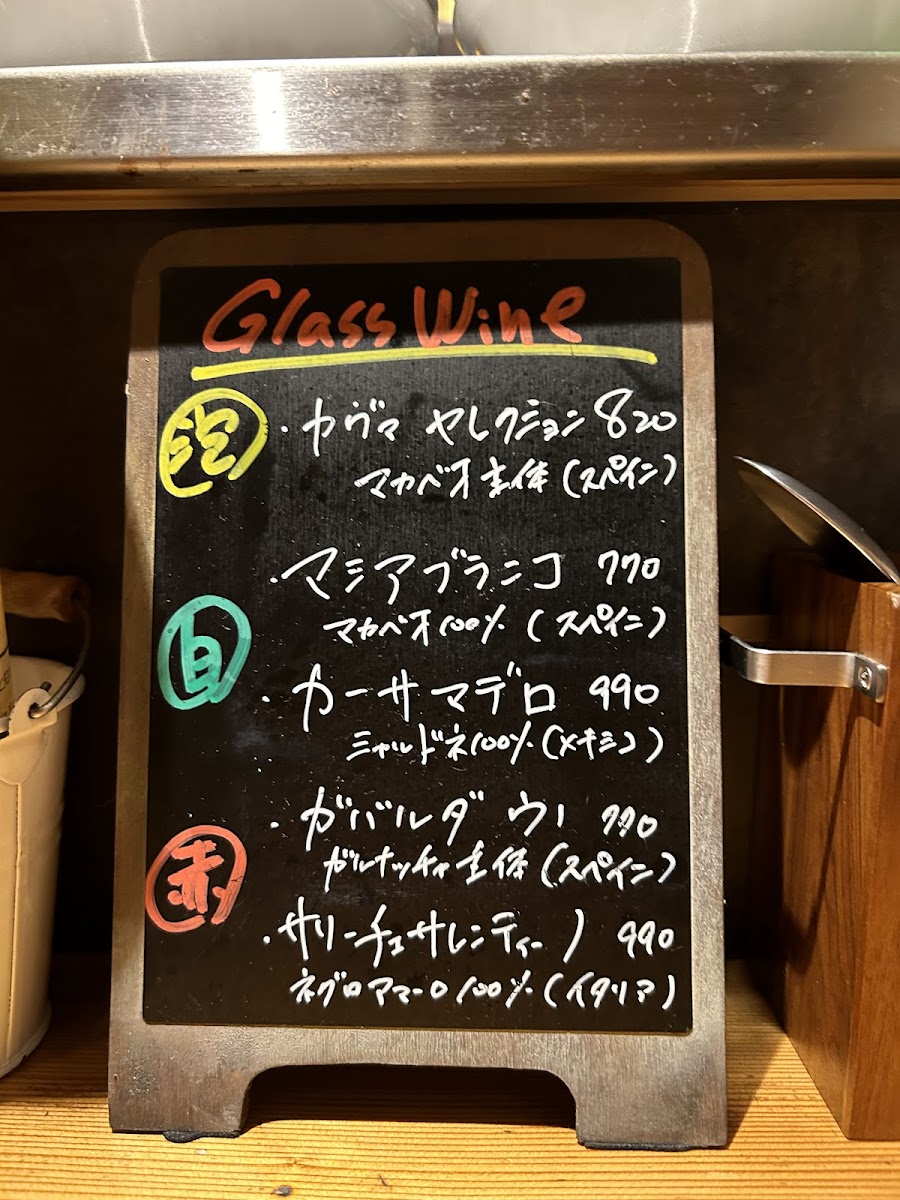 Glass Wine
泡
・カヴァ セレクション 820
マカベオ主体 (スペイン)
白
・マシアブランコ 770
マカベオ100% (スペイン)
・カーサマデロ 990
シャルドネ100% (メキシコ)
赤
・ガバルダ ウノ 770
ガルナッチャ主体 (スペイン)
・サリーチェサレンティーノ 990
ネグロアマーロ100% (イタリア)